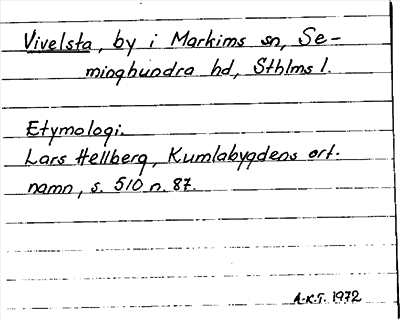 Vivelsta, by i Markims sn, Se-
minghundra hd, Sthlms l.
Etymologi.
Lars Hellberg, Kumlabygdens ort-
namn, s. 510 n. 87.
A.K.T. 1972